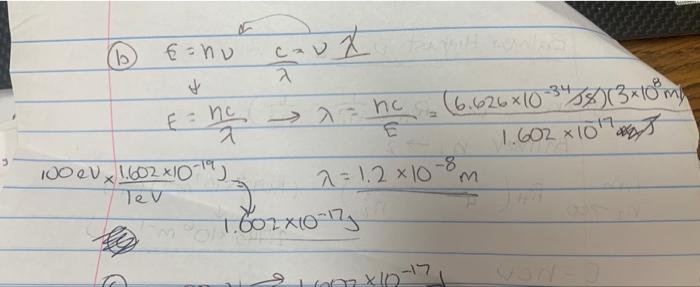 (b) E = hν c = ν λ
λ
↓
E = hc/λ → λ = hc/E = (6.626×10⁻³⁴ Js)(3×10⁸ m)
1.602 ×10⁻¹⁷ J
100 eV × 1.602 ×10⁻¹⁹ J / 1eV
λ = 1.2 ×10⁻⁸ m
1.602×10⁻¹⁷ J